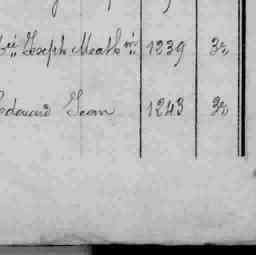 Joseph Math 1239 32
Edouard Jean 1243 32